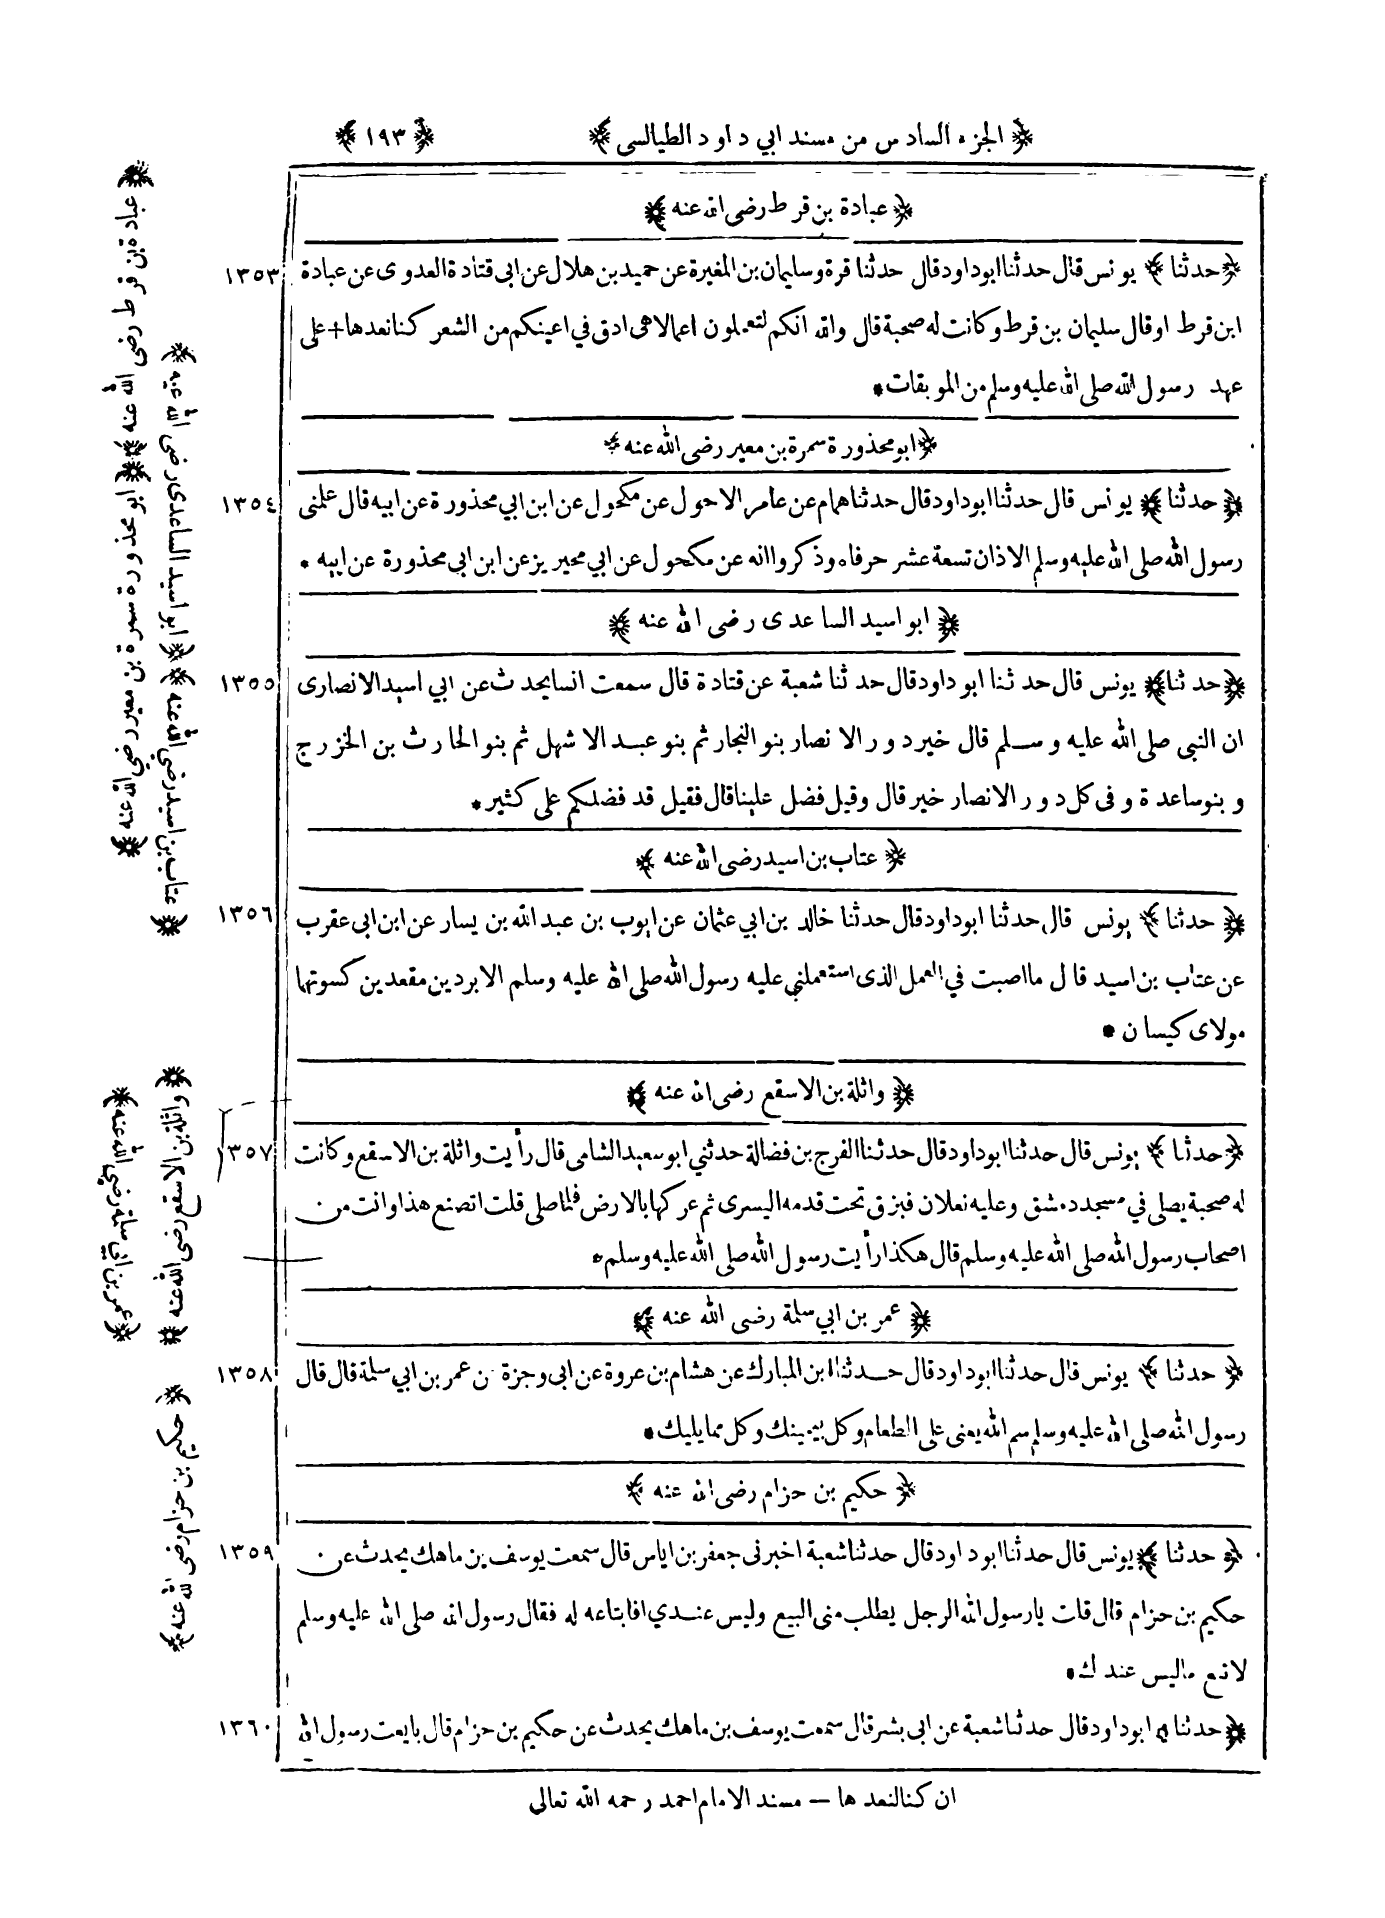 ﴿ الجزء السادس من مسند ابي داود الطيالسي ﴾ ﴿ ١٩٣ ﴾
﴿ عبادة بن قرط رضى الله عنه ﴾
١٣٥٣ ﴿ حدثنا ﴾ يونس قال حدثنا ابوداود قال حدثنا قرة وسليمان بن المغيرة عن حميد بن هلال عن ابى قتادة العدوى عن عبادة
ابن قرط اوقال سليمان بن قرط وكانت له صحبة قال والله انكم لتعملون اعمالا هى ادق في اعينكم من الشعر كنا نعدها + على
عهد رسول الله صلى الله عليه وسلم من الموبقات •
﴿ ابو محذورة سمرة بن معير رضى الله عنه ﴾
١٣٥٤ ﴿ حدثنا ﴾ يونس قال حدثنا ابوداود قال حدثنا همام عن عامر الاحول عن مكحول عن ابن ابي محذورة عن ابيه قال علمنى
رسول الله صلى الله عليه وسلم الاذان تسعة عشر حرفا • وذكروا انه عن مكحول عن ابي محيريز عن ابن ابى محذورة عن ابيه •
﴿ ابو اسيد الساعدى رضى الله عنه ﴾
١٣٥٥ ﴿ حدثنا ﴾ يونس قال حدثنا ابو داود قال حدثنا شعبة عن قتادة قال سمعت انسا يحدث عن ابي اسيد الانصارى
ان النبى صلى الله عليه وسلم قال خير دور الانصار بنو النجار ثم بنو عبد الاشهل ثم بنو الحارث بن الخزرج
وبنو ساعدة وفى كل دور الانصار خير قال وقيل فضل علينا قال فقيل قد فضلكم على كثير •
﴿ عتاب بن اسيد رضى الله عنه ﴾
١٣٥٦ ﴿ حدثنا ﴾ يونس قال حدثنا ابوداود قال حدثنا خالد بن ابي عثمان عن ايوب بن عبد الله بن يسار عن ابن ابى عقرب
عن عتاب بن اسيد قال ما اصبت في العمل الذى استعملني عليه رسول الله صلى الله عليه وسلم الا بردين مقعدين كسوتها
مولاى كيسان •
﴿ واثلة بن الاسقع رضى الله عنه ﴾
١٣٥٧ ﴿ حدثنا ﴾ يونس قال حدثنا ابوداود قال حدثنا الفرج بن فضالة حدثني ابو سعيد الشامى قال رأيت واثلة بن الاسقع وكانت
له صحبة يصلى في مسجد دمشق وعليه نعلان فبزق تحت قدمه اليسرى ثم عركها بالارض فلما صلى قلت اتصنع هذا وانت من
اصحاب رسول الله صلى الله عليه وسلم قال هكذا رأيت رسول الله صلى الله عليه وسلم •
﴿ عمر بن ابي سلمة رضى الله عنه ﴾
١٣٥٨ ﴿ حدثنا ﴾ يونس قال حدثنا ابوداود قال حدثنا ابن المبارك عن هشام بن عروة عن ابى وجزة عن عمر بن ابي سلمة قال قال
رسول الله صلى الله عليه وسلم سم الله يعنى على الطعام وكل بيمينك وكل مما يليك •
﴿ حكيم بن حزام رضى الله عنه ﴾
١٣٥٩ ﴿ حدثنا ﴾ يونس قال حدثنا ابوداود قال حدثنا شعبة اخبرنى جعفر بن اياس قال سمعت يوسف بن ماهك يحدث عن
حكيم بن حزام قال قلت يا رسول الله الرجل يطلب منى البيع وليس عندي افابتاعه له فقال رسول الله صلى الله عليه وسلم
لا تبع ما ليس عندك •
١٣٦٠ ﴿ حدثنا ﴾ ابوداود قال حدثنا شعبة عن ابى بشر قال سمعت يوسف بن ماهك يحدث عن حكيم بن حزام قال بايعت رسول الله
ان كنا لنعدها — مسند الامام احمد رحمه الله تعالى
﴿ عبادة بن قرط رضى الله عنه ﴾ ﴿ ابو محذورة سمرة بن معير رضي الله عنه ﴾
﴿ ابو اسيد الساعدى رضى الله عنه ﴾ ﴿ عتاب بن اسيد رضي الله عنه ﴾
﴿ واثلة بن الاسقع رضى الله عنه ﴾
﴿ عمر بن ابي سلمة رضي الله عنه ﴾
﴿ حكيم بن حزام رضى الله عنه ﴾